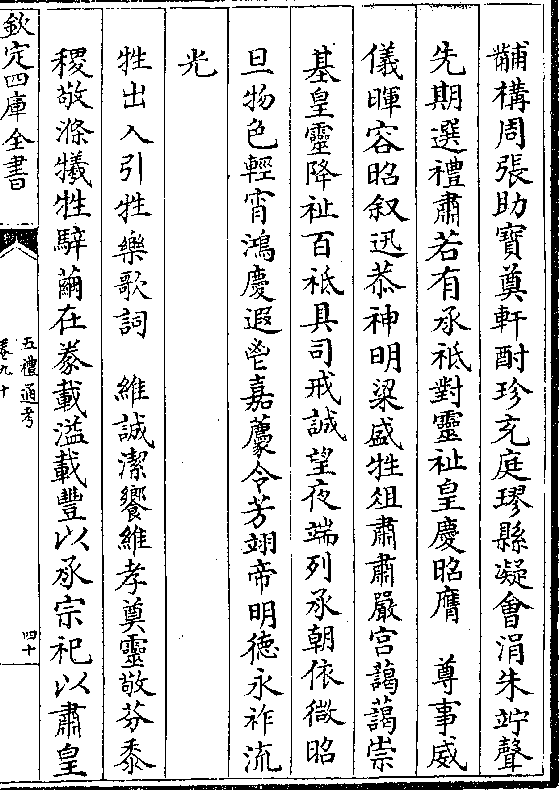 黼構周張助寶奠軒酎珍充庭璆縣凝會涓朱竚聲
先期選禮肅若有承祗對靈祉皇慶昭膺　尊事威
儀暉容昭叙迅恭神明粢盛牲俎肅肅嚴宫藹藹崇
基皇靈降祉百祗具司戒誠望夜端列承朝依微昭
旦物色輕宵鴻慶遐鬯嘉薦令芳翊帝明德永祚流
光
牲出入引牲樂歌詞　維誠潔饗維孝奠靈敬芬黍
稷敬滌犧牲騂繭在豢載溢載豐以承宗祀以肅皇
欽定四庫全書
五禮通考
卷九十
四十